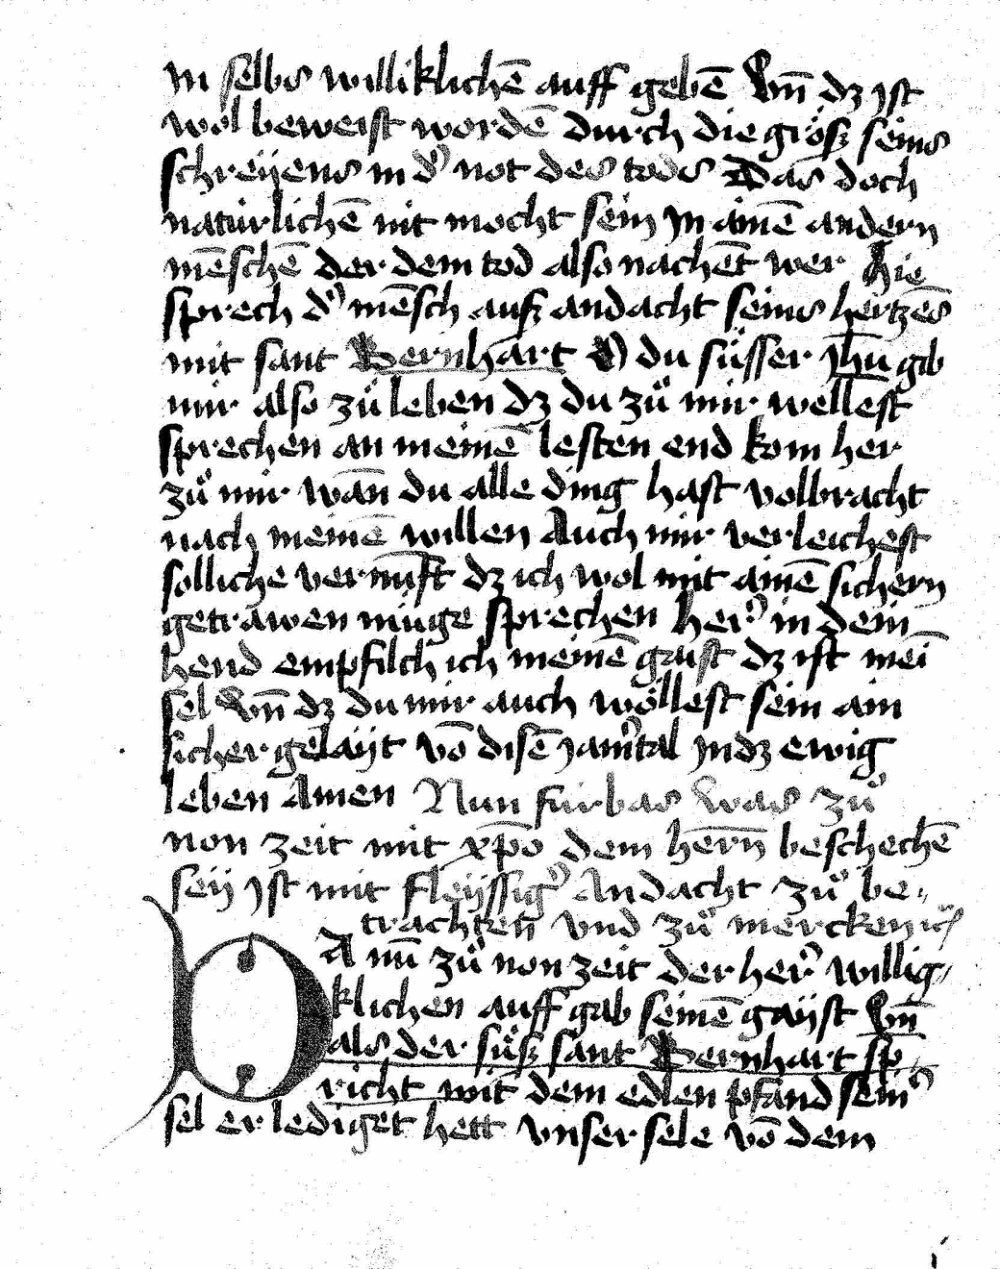 in selbs williklichē auff gebē Vn̄ dz ist
wol beweist wordē durch die größ seins
schreijens in dˀ not des tods Das doch
naturlichē nit mocht sein In aimē andern
mēschē der dem tod also nachēt wer Hie
sprech dˀ mēsch auß andacht seins hertzēs
mit sant Bernhart O du süsser Jhū gib
mir also zuͦ leben dz du zuͦ mir wellest
sprechen an meinē lesten end kom her
zuͦ mir wān du alle ding hast volbracht
nach meinē willen Auch mir verleichest
solliche vernunft dz ich wol mit aimē sichern
getrawen muge sprechen herˀ in dein
hend empfilch ich meinē gaist dz ist mei̅
sel Vn̄ dz du mir auch wöllest sein ain
sicher gelaijt vō disē iamˀtal in dz ewig
leben Amen Nun furbas was zuͦ
non zeit mit xp̄o dem hern̄ beschechē
seij Ist mit fleijssigˀ Andacht zuͦ be-
trachten vnd zuͦ mercken
DA nun̄ zuͦ non zeit der herˀ willig-
klichen auff gab seinē gaijst Vn̄
als der süß sant Bernhart sp-
richt mit dem edlen pfand seinˀ
sel er lediget hett vnser sele vō dem